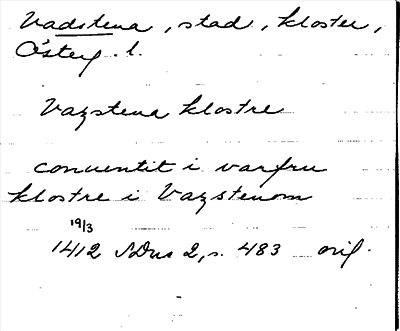 Vadstena, stad, kloster,
Österg. l.
Vazstena klostre
conuentit i varfru
klostre i Vazstenom
19/3
1412 SDns 2, s. 483 orig.